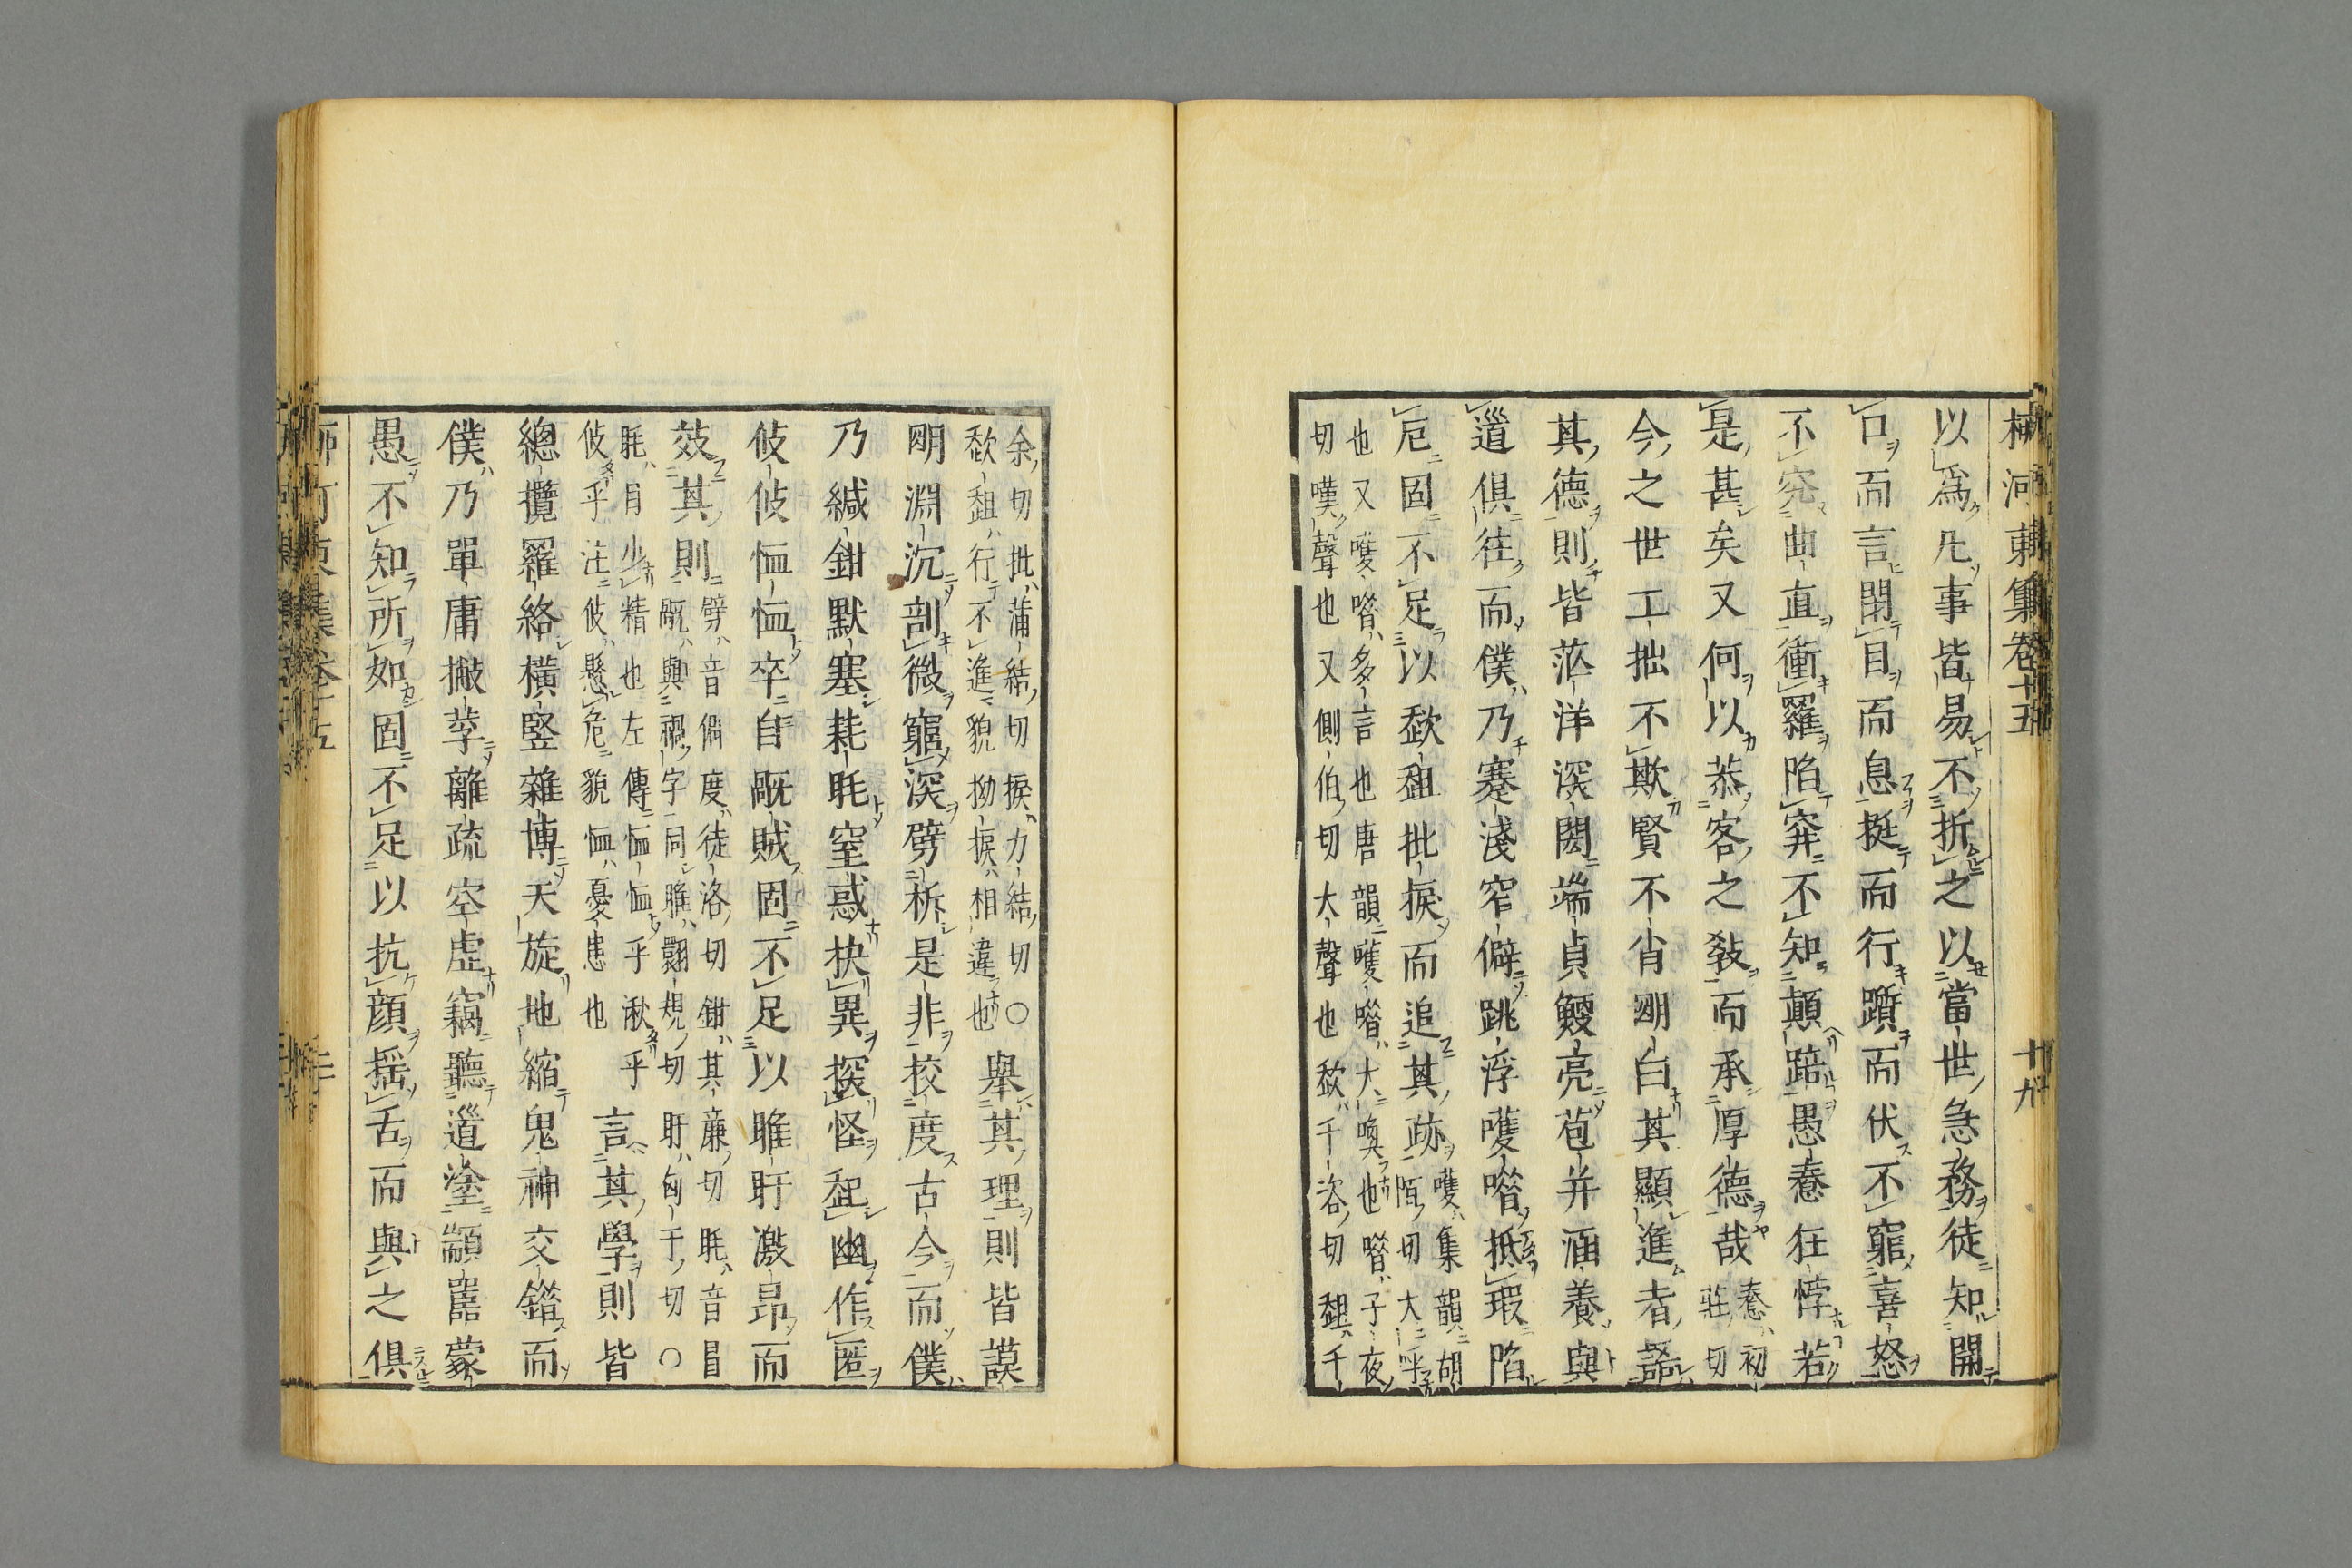 柳河東集卷十五　十九
以爲凡事皆易不折之以當世急務徒知開
口而言閉目而息挺而行躓而伏不窮喜怒
不究曲直衝羅陷穽不知顛踣愚惷狂悖若
是甚矣又何以恭客之敎而承厚德哉惷初
莊切
今之世工拙不欺賢不肖明白其顯進者語
其德則皆茫洋深閎端貞鯁亮苞并涵養與
道俱往而僕乃蹇淺窄僻跳浮嚄唶抵瑕陷
厄固不足以趑趄批捩而追其跡嚄集韻胡
陌切大呼
也又嚄唶多言也唐韻嚄唶大喚也唶子夜
切嘆聲也又側伯切大聲也趑千咨切趄千
余切批蒲結切捩力結切○
趑趄行不進貌拗捩相違也舉其理則皆謨
明淵沉剖微窮深劈析是非校度古今而僕
乃緘鉗默塞耗眊窒惑抉異探怪起幽作匿
攸攸恤恤卒自禍賊固不足以睢盱激昂而
效其則劈音僻度徒洛切鉗其廉切眊音冒
旤與禍字同睢翾規切盱匈于切○
眊目少精也左傳恤恤乎湫乎
攸乎注攸懸危貌恤憂患也言其學則皆
總攬羅絡橫竪雜博天旋地縮鬼神交錯而
僕乃單庸撇莩離疏空虛竊聽道塗顓嚚蒙
愚不知所如固不足以抗顔搖舌而與之俱